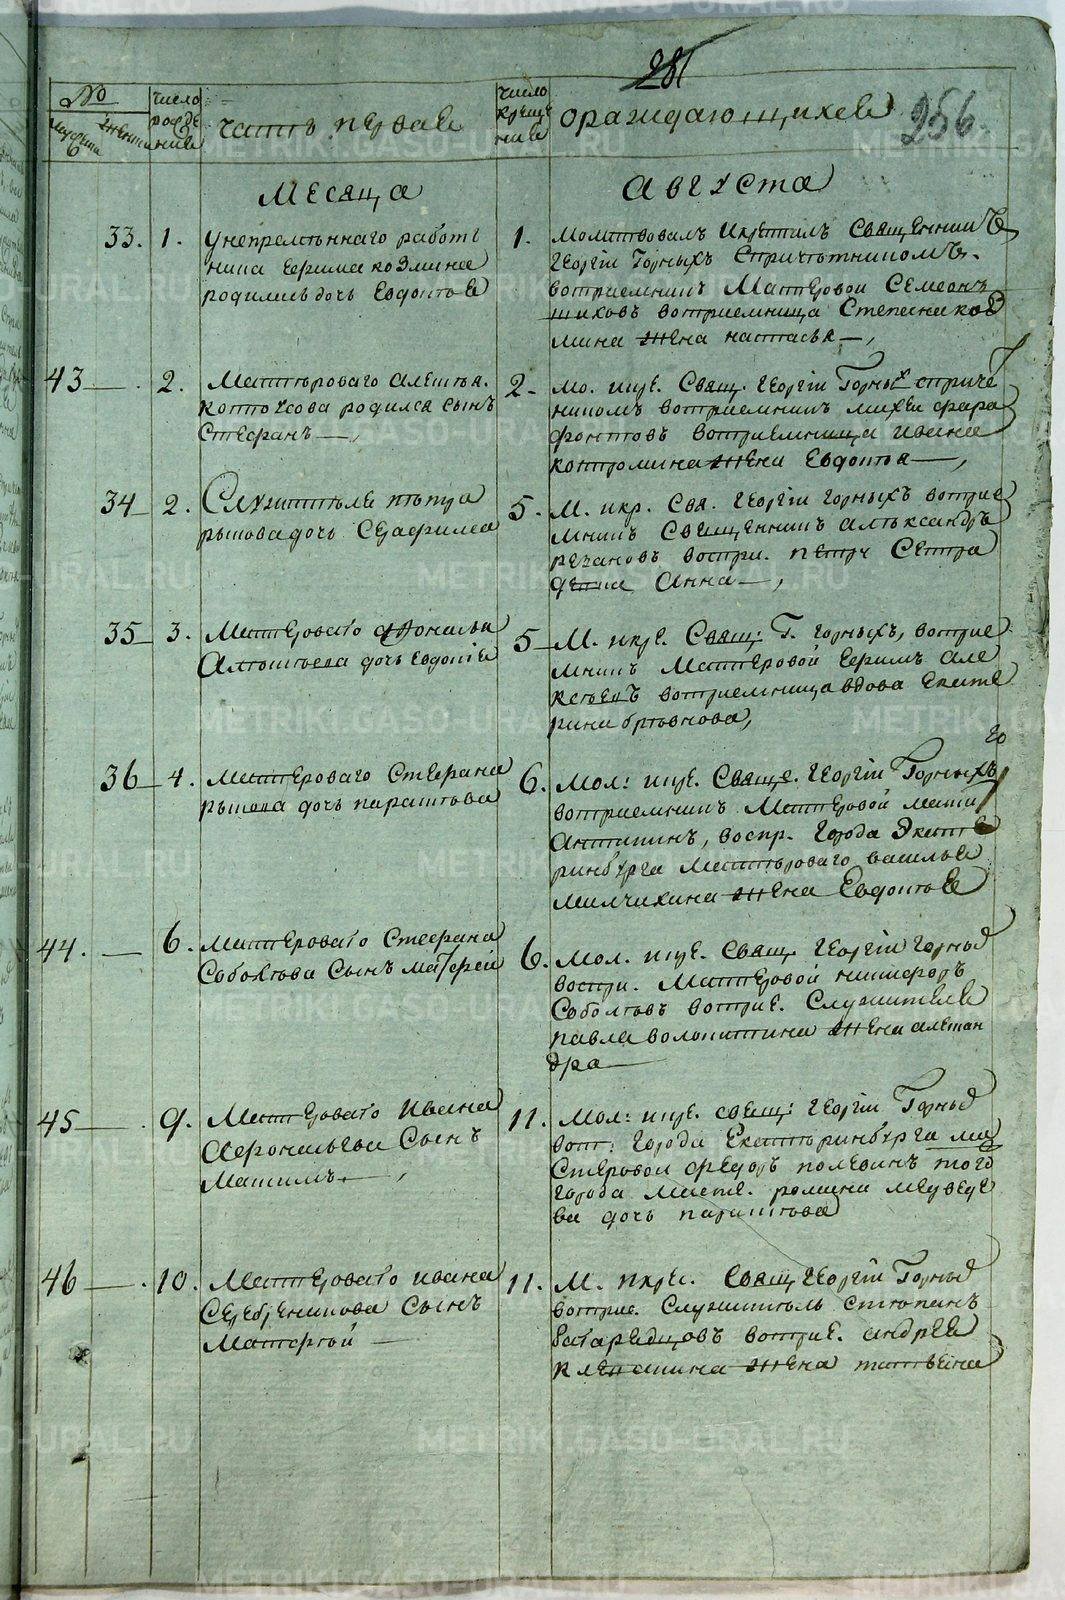 281
256
№
мужеска
женска
число рожде ния
часть первая
число креще ния
ораждающихся
месяца
августа
33. 1. унепременнаго работ
ника Ефима козмина
родилась дочь Евдотья
1. Молитвовалъ Икрестилъ Священникъ
Георгіи Горныхъ Спричетникомъ
восприемникъ Мастеровои Семеонъ
восприемница Степана коз
мина жена настасья
43 2. Мастероваго алексея
родился сынъ
Стефанъ
2. мо. икре. Свящ. Георгіи Горных сприче
никомъ восприемникъ михеи фара
фонтовъ восприемница ивана
жена Евдотья
34 2. Служителя петра
рышова дочь Серафима
5. М. икр. Свя. Георгіи Горныхъ восприе
мникъ Священникъ александръ
воспри. петр Сестра
Анна
35 3. Мастероваго афонасья
дочь Евдокія
5 М. икре. Свящ: Г. Горныхъ, восприе
мникъ Мастеровой Ефимъ але
ксеевъ восприемница вдова Екате
рина
36 4. Мастероваго Стефана
рышова дочь парасковья
6. Мол: икре. Свяще. Георгіи Горныхъ
восприемникъ Мастеровой
Антипинъ, воспр. Города Экате
ринбурга Мастероваго василья
милчихина жена Евдотья
44. 6. мастероваго Стефана
Соболева Сынъ матфей
6. Мол. икре. Свящ. Георгіи Горных
воспри. Мастеровой никифоръ
Соболевъ воспрie. Служителя
павла волокитина жена алексан
дра
45 9. Мастероваго ивана
афонасьева Сынъ
Максимъ
11. Мол: икре. свещ: Георгіи Горных
восп: Города Екатеринбурга ма
Стеровои федоръ полевинъ того
города масте. романа медведе
ва дочь парасковья
46 10. Мастероваго ивана
Серебреникова Сынъ
Матфей
11. М. икре. Свящ. Георгіи Горных
восприе. Служитель степанъ
восприе. андрея
клепинина жена татьяна